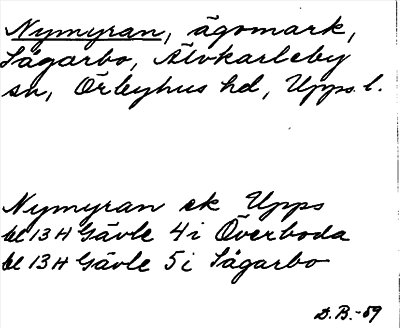 Nymyran, ägomark,
Sågarbo, Älvkarleby
sn, Örbyhus hd, Upps. l.
Nymyran ek Upps
bl 13 H Gävle 4 i Överboda
bl 13 H Gävle 5 i Sågarbo
D.B.-59